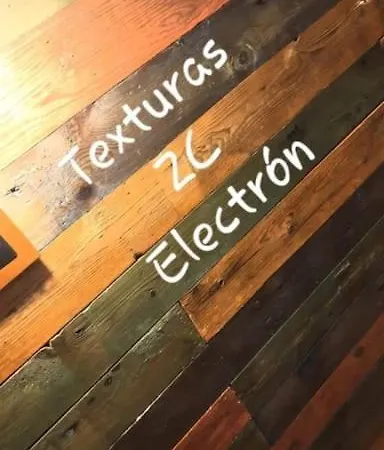 Texturas
2C
Electrón